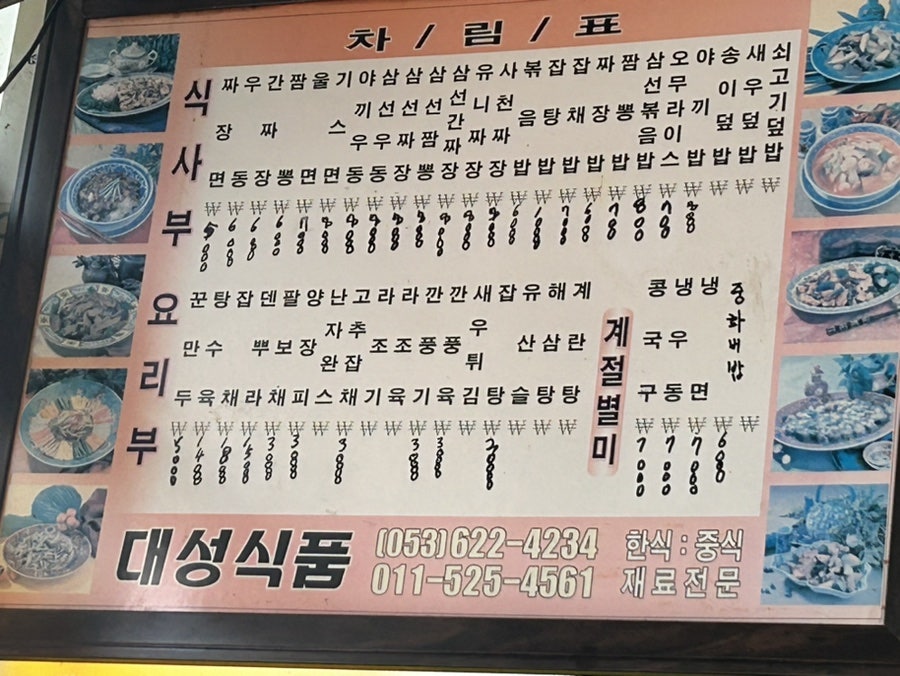 차/림/표
식사부
짜장면 ₩5000
우동 ₩6000
간짜장 ₩6000
짬뽕 ₩6000
울면 ₩7000
기스면 ₩8000
야끼우동 ₩8000
삼선우동 ₩8000
삼선짜장 ₩8000
삼선짬뽕 ₩8000
삼선간짜장 ₩8000
유니짜장 ₩8000
사천짜장 ₩8000
볶음밥 ₩6000
잡탕밥 ₩
잡채밥 ₩7000
짜장밥 ₩6000
짬뽕밥 ₩7000
삼선볶음밥 ₩8000
오무라이스 ₩7000
야끼밥 ₩8000
송이덮밥 ₩
새우덮밥 ₩
쇠고기덮밥 ₩
요리부
꾼만두 ₩5000
탕수육 ₩
잡채 ₩
덴뿌라 ₩
팔보채 ₩
양장피 ₩
난자완스 ₩
고추잡채 ₩
라조기 ₩
라조육 ₩
깐풍기 ₩
깐풍육 ₩
새우튀김 ₩
잡탕 ₩
유산슬 ₩
해삼탕 ₩
계란탕 ₩
계절별미
콩국구 ₩7000
냉우동 ₩7000
냉면 ₩7000
₩6000
대성식품
(053)622-4234
011-525-4561
한식:중식
재료전문